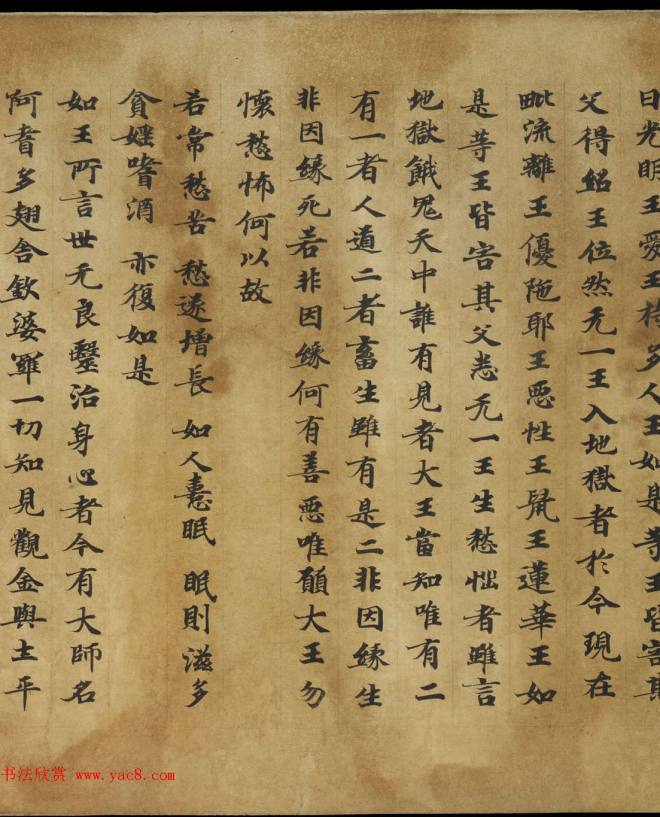 日光明王愛王持多人王如是等王皆害其
父得紹王位然无一王入地獄者於今現在
毗流離王優陁耶王惡性王䑕王蓮華王如
是等王皆害其父悉无一王生愁惱者雖言
地獄餓鬼天中誰有見者大王當知唯有二
有一者人道二者畜生雖有是二非因緣生
非因緣死若非因緣何有善惡唯願大王勿
懷愁怖何以故
若常愁苦 愁遂增長 如人憙眠 眠則滋多
貪婬嗜酒 亦復如是
如王所言世无良醫治身心者今有大師名
阿耆多翅舍欽婆羅一切知見觀金與土平
书法欣赏 www.yac8.com